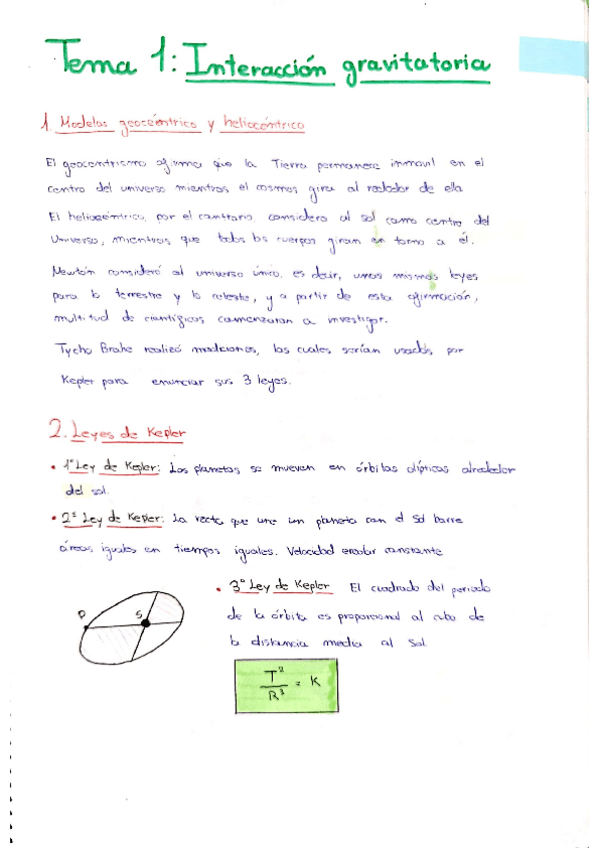 Tema 1: Interacción gravitatoria
1. Modelos geocéntrico y heliocéntrico
El geocentrismo afirma que la Tierra permanece inmóvil en el
centro del universo mientras el cosmos gira al rededor de ella
El heliocéntrico, por el contrario considera al sol como centro del
Universo, mientras que todos los cuerpos giran en torno a él.
Newton consideró al universo único, es decir, unas mismas leyes
para lo terrestre y lo celeste, y a partir de esta afirmación,
multitud de científicos comenzaron a investigar.
Tycho Brahe realizó mediciones, las cuales serían usadas por
Kepler para enunciar sus 3 leyes.
2. Leyes de Kepler
• 1ª Ley de Kepler: Los planetas se mueven en órbitas elípticas alrededor
del sol.
• 2ª Ley de Kepler: La recta que une un planeta con el Sol barre
áreas iguales en tiempos iguales. Velocidad areolar constante
• 3ª Ley de Kepler El cuadrado del periodo
de la órbita es proporcional al cubo de
la distancia media al Sol
P S
T²
R³ = K